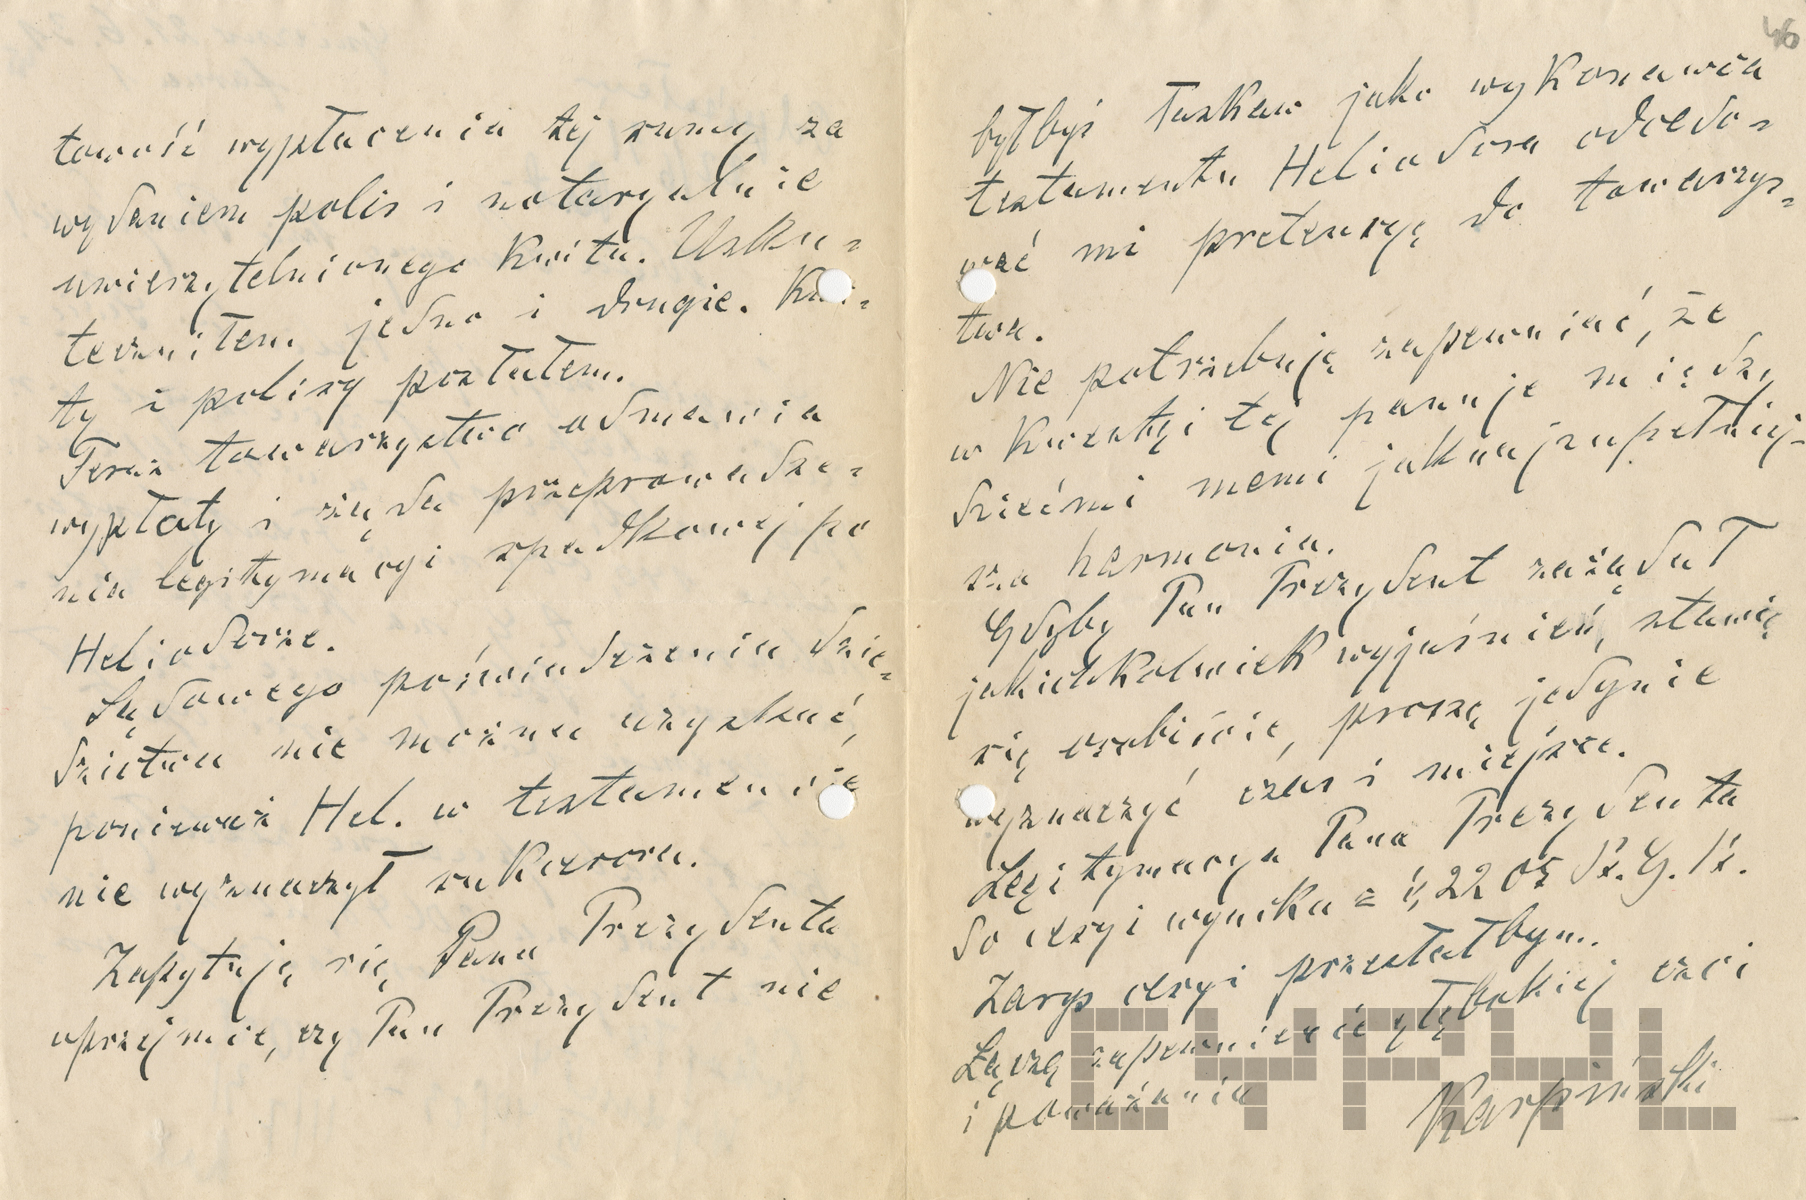 towość wypłacenia tej sumy za
wydaniem polis i notaryalnie
uwierzytelnionego kwitu. Usku-
teczniłem jedno i drugie. Kwi-
ty i polisy posłałem.
Teraz towarzystwo odmawia
wypłaty i żąda przeprowadze-
nia legitymacyi spadkowej po
Heliodorze.
Sądowego poświadczenia dzie-
dzictwa nie można uzyskać,
ponieważ Hel. w testamencie
nie wyznaczył sukcesora.
Zapytuję się Pana Prezydenta
uprzejmie, czy Pan Prezydent nie
46
byłbyś łaskaw jako wykonawca
testamentu Heliodora odcedo-
wać mi pretensyę do towarzys-
twa.
Nie potrzebuję zapewniać, że
w kwestyi tej panuje między
dziećmi memi jaknajzupełniej-
sza harmonia.
Gdyby Pan Prezydent zażądał
jakichkolwiek wyjaśnień, stawię
się osobiście, proszę jedynie
wyznaczyć czas i miejsce.
Legitymacya Pana Prezydenta
do cesyi wynika z § 2205 B.G.B.
Zarys cesyi przesłałbym.
Łączę zapewnienie głębokiej czci
i poważania
Karpiński
CYRYL